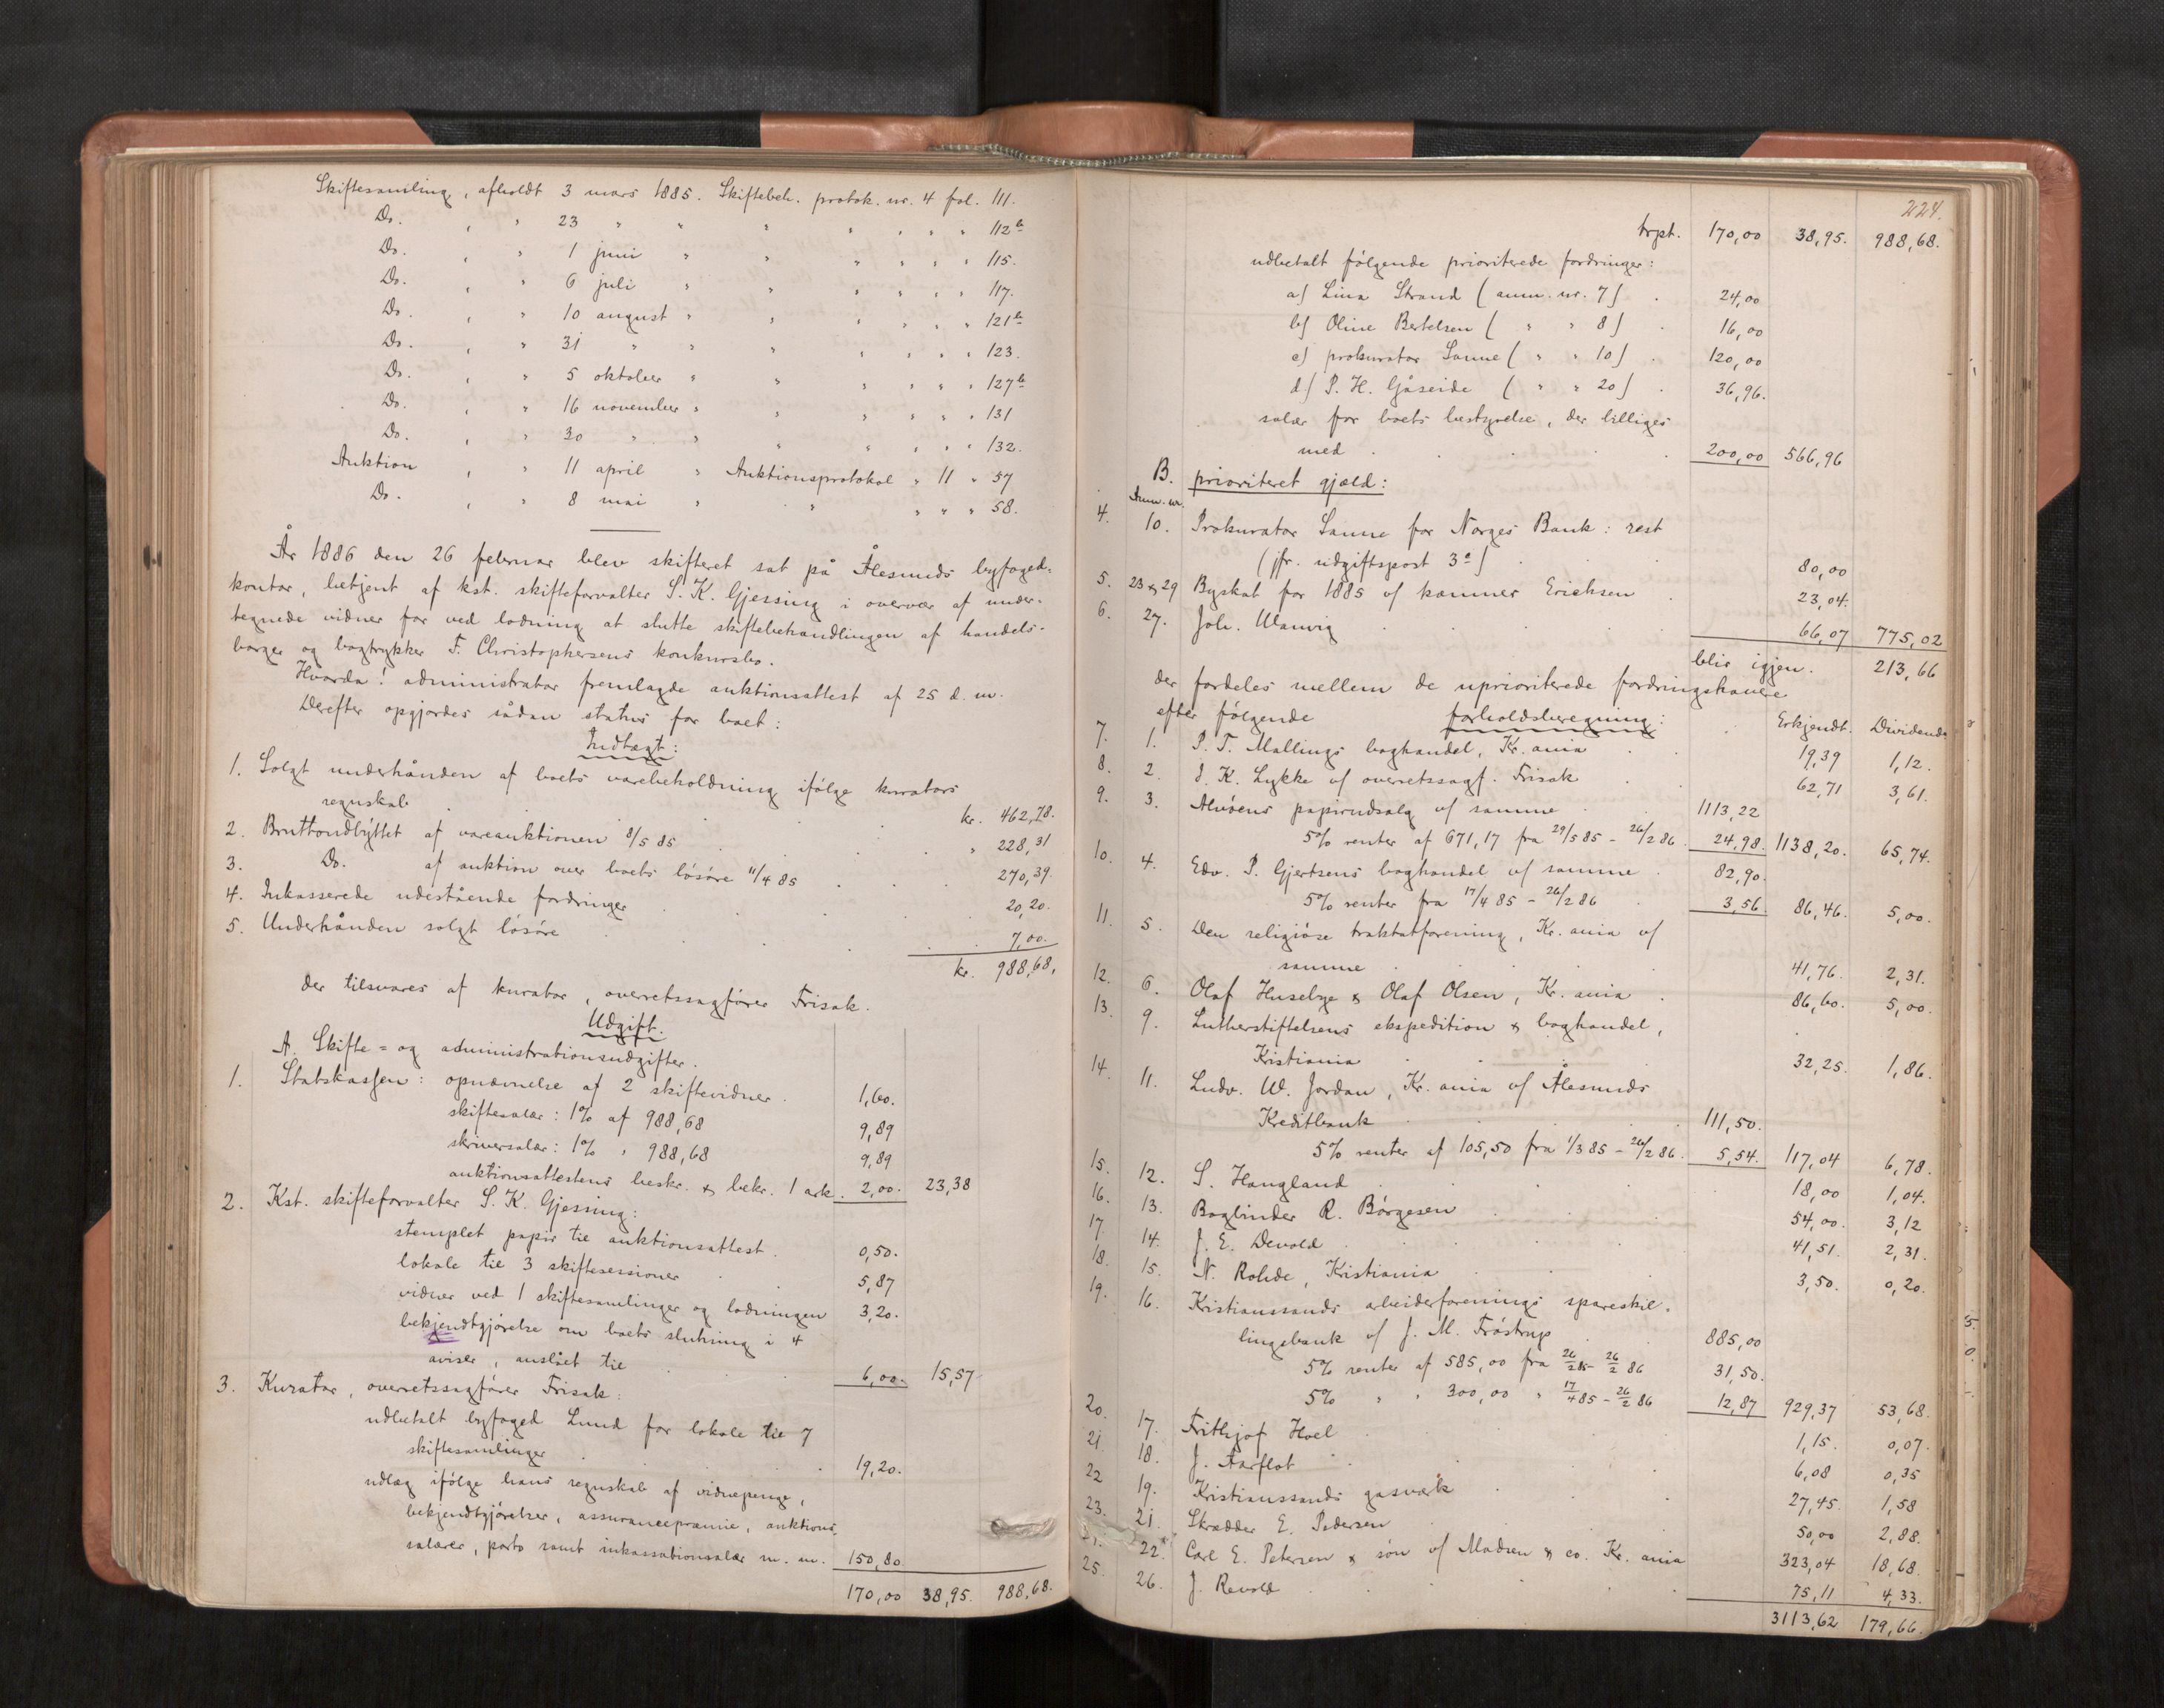 Skiftesamling, afholdt 3 mars 1885. Skiftebeh. protok. nr. 4 fol. 111.
Do. " " 23 " " " " " " " 112b
Do. " " 1 juni " " " " " " 115.
Do. " " 6 juli " " " " " " 117.
Do. " " 10 august " " " " " " 121b
Do. " " 31 " " " " " " " 123.
Do. " " 5 oktober " " " " " " 127b
Do. " " 16 november " " " " " " 131
Do. " " 30 " " " " " " " 132.
Auktion " " 11 april " Auktionsprotokol " 11 " 57
Do. " " 8 mai " " " " " 58.
År 1886 den 26 februar blev skifteret sat på Ålesunds byfoged-
kontor, betjent af kst. skifteforvalter S. K. Gjessing i overvær af under-
tegnede vidner for ved lodning at slutte skiftebehandlingen af handels-
borger og bogtrykker F. Christophersens konkursbo.
Hvorda! administrator fremlagde auktionsattest af 25 d. m.
Derefter opgjordes sådan status for boet:
Indtægt:
1. Solgt underhånden af boets varebeholdning ifølge kurators
regnskab . kr. 462,78.
2. Bruttoudbyttet af vareauktionen 8/5 85 . " 228,31
3. Do. af auktion over boets løsøre 11/4 85 . 270,39.
4. Inkasserede udestående fordringer . 20,20.
5. Underhånden solgt løsøre . 7,00.
kr. 988,68.
der tilsvares af kurator, overretssagfører Frisak.
Udgift.
A. Skifte- og administrationsudgifter.
1. Statskassen: opnævnelse af 2 skiftevidner . 1,60.
skiftesalær: 1% af 988,68 9,89
skriversalær: 1% " 988,68 9,89
auktionsattestens beskr. & bekr. 1 ark. 2,00. 23,38
2. Kst. skifteforvalter S. K. Gjessing:
stemplet papir til auktionsattest . 0,50.
lokale til 3 skiftesessioner . 5,87
vidner ved 1 skiftesamlinger og lodningen 3,20.
bekjendtgjørelse om boets slutning i 4
aviser, anslået til . 6,00. 15,57
3. Kurator, overretssagfører Frisak:
udbetalt byfoged Lund for lokale til 7
skiftesamlinger . 19,20.
udlæg ifølge hans regnskab af vidnepenge,
bekjendtgjørelser, assurancepræmie, auktions-
salærer, porto samt inkassationsalær m. m. 150,80.
170,00 38,95. 988,68.
224.
trpt. 170,00 38,95. 988,68.
udbetalt følgende prioriterede fordringer:
a) Lina Strand (anm. nr. 7) . 24,00
b) Oline Bertelsen ( " " 8) . 16,00
c) prokurator Sanne ( " " 10) . 120,00
d) P. H. Gåseide ( " " 20) . 36,96.
salær for boets bestyrelse, der billiges
med . 200,00 566,96
B. prioriteret gjæld:
Anm. nr.
4. 10. Prokurator Sanne for Norges Bank: rest
(jfr. udgiftspost 3c) . 80,00
5. 23 & 29 Byskat for 1885 v/ kæmner Erichsen . 23,04.
6. 27. Joh. Wanvig . 66,07 775,02
blir igjen. 213,66
der fordeles mellem de uprioriterede fordringshavere
efter følgende forholdsberegning: Erkjendt. Dividende
7. 1. P. T. Mallings boghandel, Kr.ania . 19,39 1,12.
8. 2. J. K. Lykke v/ overretssagf. Frisak . 62,71 3,61.
9. 3. Alvøens papirudsalg v/ samme . 1113,22
5% renter af 671,17 fra 29/5 85 - 26/2 86 . 24,98. 1138,20. 65,74.
10. 4. Edv. P. Gjertsens boghandel v/ samme . 82,90.
5% renter fra 17/4 85 - 26/2 86 . 3,56. 86,46. 5,00.
11. 5. Den religiøse traktatforening, Kr.ania v/
samme . 41,76. 2,31.
12. 6. Olaf Huseby & Olaf Olsen, Kr.ania . 86,60. 5,00.
13. 9. Lutherstiftelsens ekspedition & boghandel,
Kristiania . 32,25. 1,86.
14. 11. Ludv. W. Jordan, Kr.ania v/ Ålesunds
Kreditbank . 111,50.
5% renter af 105,50 fra 1/3 85 - 26/2 86 . 5,54. 117,04 6,78.
15. 12. S. Haugland . 18,00 1,04.
16. 13. Bogbinder R. Børgesen . 54,00. 3,12
17 14. J. E. Devold . 41,51. 2,31.
18. 15. N. Rohde, Kristiania . 3,50. 0,20.
19. 16. Kristianssands arbeiderforenings spareskil-
lingsbank v/ J. M. Frøstrup . 885,00
5% renter af 585,00 fra 26/2 85 - 26/2 86 31,50.
5% " " 300,00 " 17/4 85 - 26/2 86 12,87 929,37 53,68.
20. 17. Frithjof Hoel . 1,15. 0,07.
21. 18. J. Aarflot . 6,08 0,35
22 19. Kristianssands gasværk . 27,45. 1,58
23. 21. Skrædder E. Pedersen . 50,00 2,88.
22. Carl E. Petersen & søn v/ Madsen & co. Kr.ania 323,04 18,68.
25. 26. J. Revold . 75,11 4,33.
3113,62 179,66.